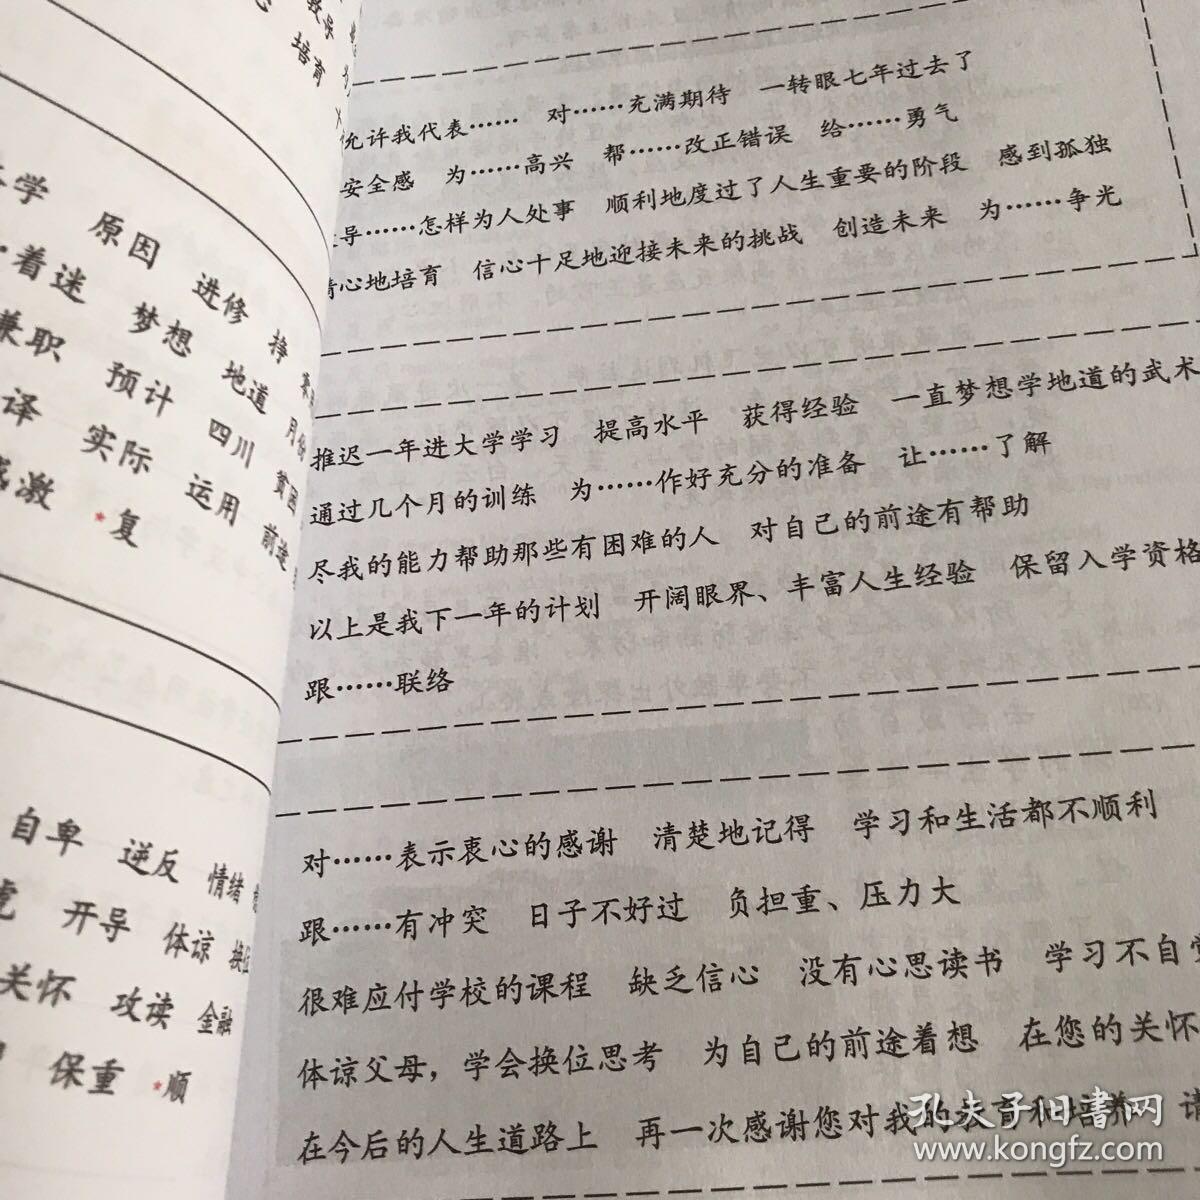 培育
学 原因 进修 挣
着迷 梦想 地道 月份
兼职 预计 四川 贫困
译 实际 运用 前途
感激 *复
自卑 逆反 情绪
虑 开导 体谅 换位
关怀 攻读 金融
保重 *顺
允许我代表…… 对……充满期待 一转眼七年过去了
安全感 为……高兴 帮……改正错误 给……勇气
导……怎样为人处事 顺利地度过了人生重要的阶段 感到孤独
精心地培育 信心十足地迎接未来的挑战 创造未来 为……争光
推迟一年进大学学习 提高水平 获得经验 一直梦想学地道的武术
通过几个月的训练 为……作好充分的准备 让……了解
尽我的能力帮助那些有困难的人 对自己的前途有帮助
以上是我下一年的计划 开阔眼界、丰富人生经验 保留入学资格
跟……联络
对……表示衷心的感谢 清楚地记得 学习和生活都不顺利
跟……有冲突 日子不好过 负担重、压力大
很难应付学校的课程 缺乏信心 没有心思读书 学习不自觉
体谅父母，学会换位思考 为自己的前途着想 在您的关怀
在今后的人生道路上 再一次感谢您对我的教育和培养 请
孔夫子旧書网
www.kongfz.com